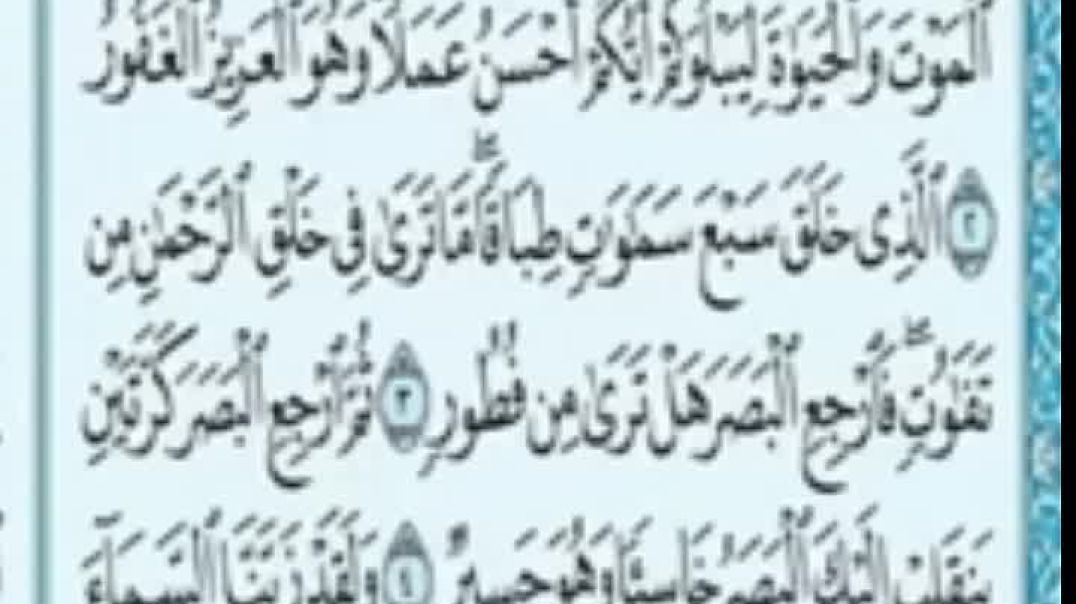 ٱلْمَوْتَ وَٱلْحَيَوٰةَ لِيَبْلُوَكُمْ أَيُّكُمْ أَحْسَنُ عَمَلًا وَهُوَ ٱلْعَزِيزُ ٱلْغَفُورُ
٢ ٱلَّذِى خَلَقَ سَبْعَ سَمَٰوَٰتٍ طِبَاقًا ۖ مَّا تَرَىٰ فِى خَلْقِ ٱلرَّحْمَٰنِ مِن
تَفَٰوُتٍ ۖ فَٱرْجِعِ ٱلْبَصَرَ هَلْ تَرَىٰ مِن فُطُورٍ ٣ ثُمَّ ٱرْجِعِ ٱلْبَصَرَ كَرَّتَيْنِ
يَنقَلِبْ إِلَيْكَ ٱلْبَصَرُ خَاسِئًا وَهُوَ حَسِيرٌ ٤ وَلَقَدْ زَيَّنَّا ٱلسَّمَآءَ